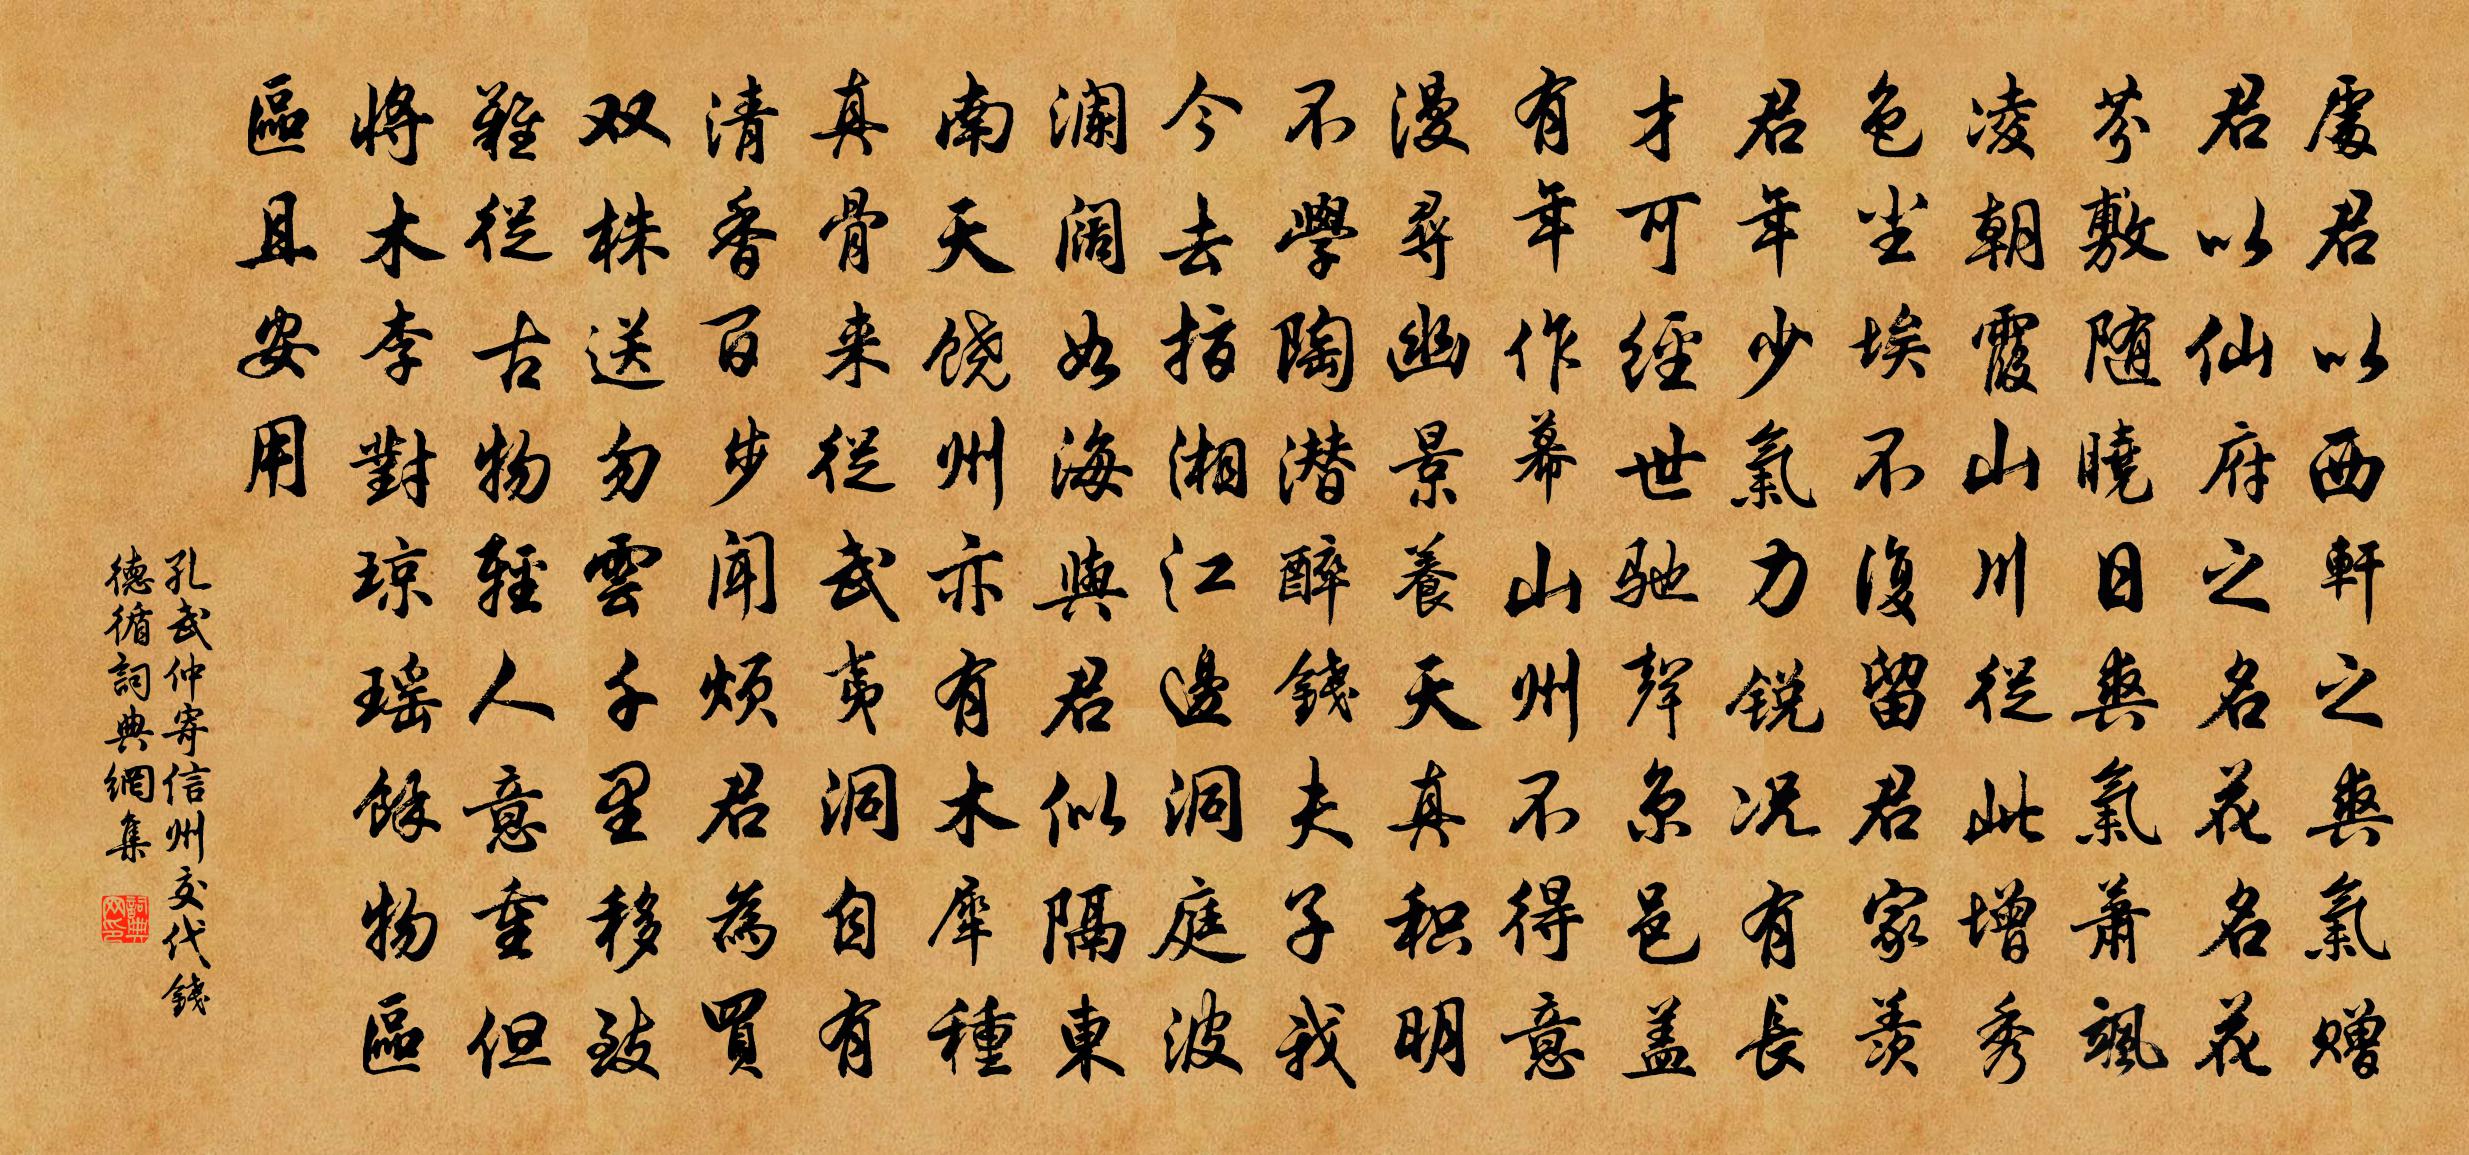 處君以西軒之爽氣赠
君以仙府之名花名花
芬敷随曉日爽氣萧颯
凌朝霞山川從此增秀
色尘埃不復留君家羡
君年少氣力锐况有長
才可經世驰聲京邑盖
有年作幕山州不得意
漫尋幽景養天真积明
不學陶潜醉錢夫子我
今去指湘江邊洞庭波
澜阔如海與君似隔東
南天饶州亦有木犀種
真骨来從武夷洞自有
清香百步闻烦君為買
双株送勿雲千里移致
難從古物輕人意重但
將木李對琼瑶餘物區
區且安用
孔武仲寄信州交代錢
德循詞典網集
詞典
网印